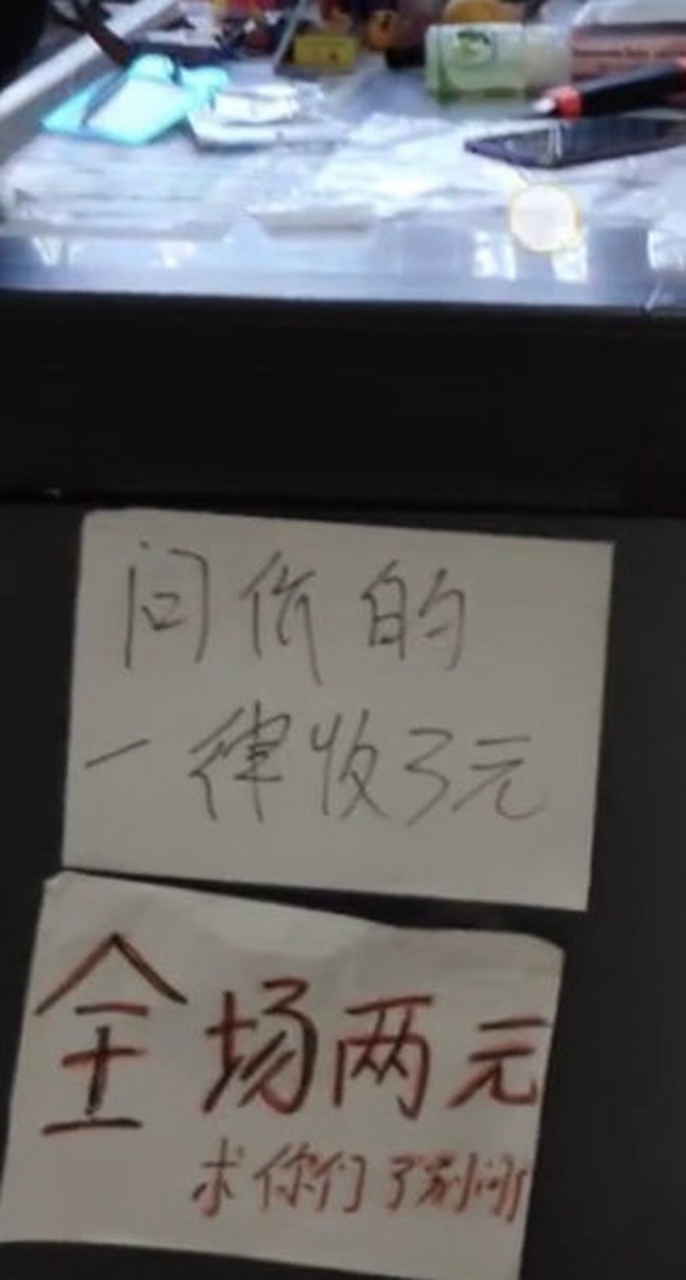 问价的
一律收3元
全场两元
求你们了别问